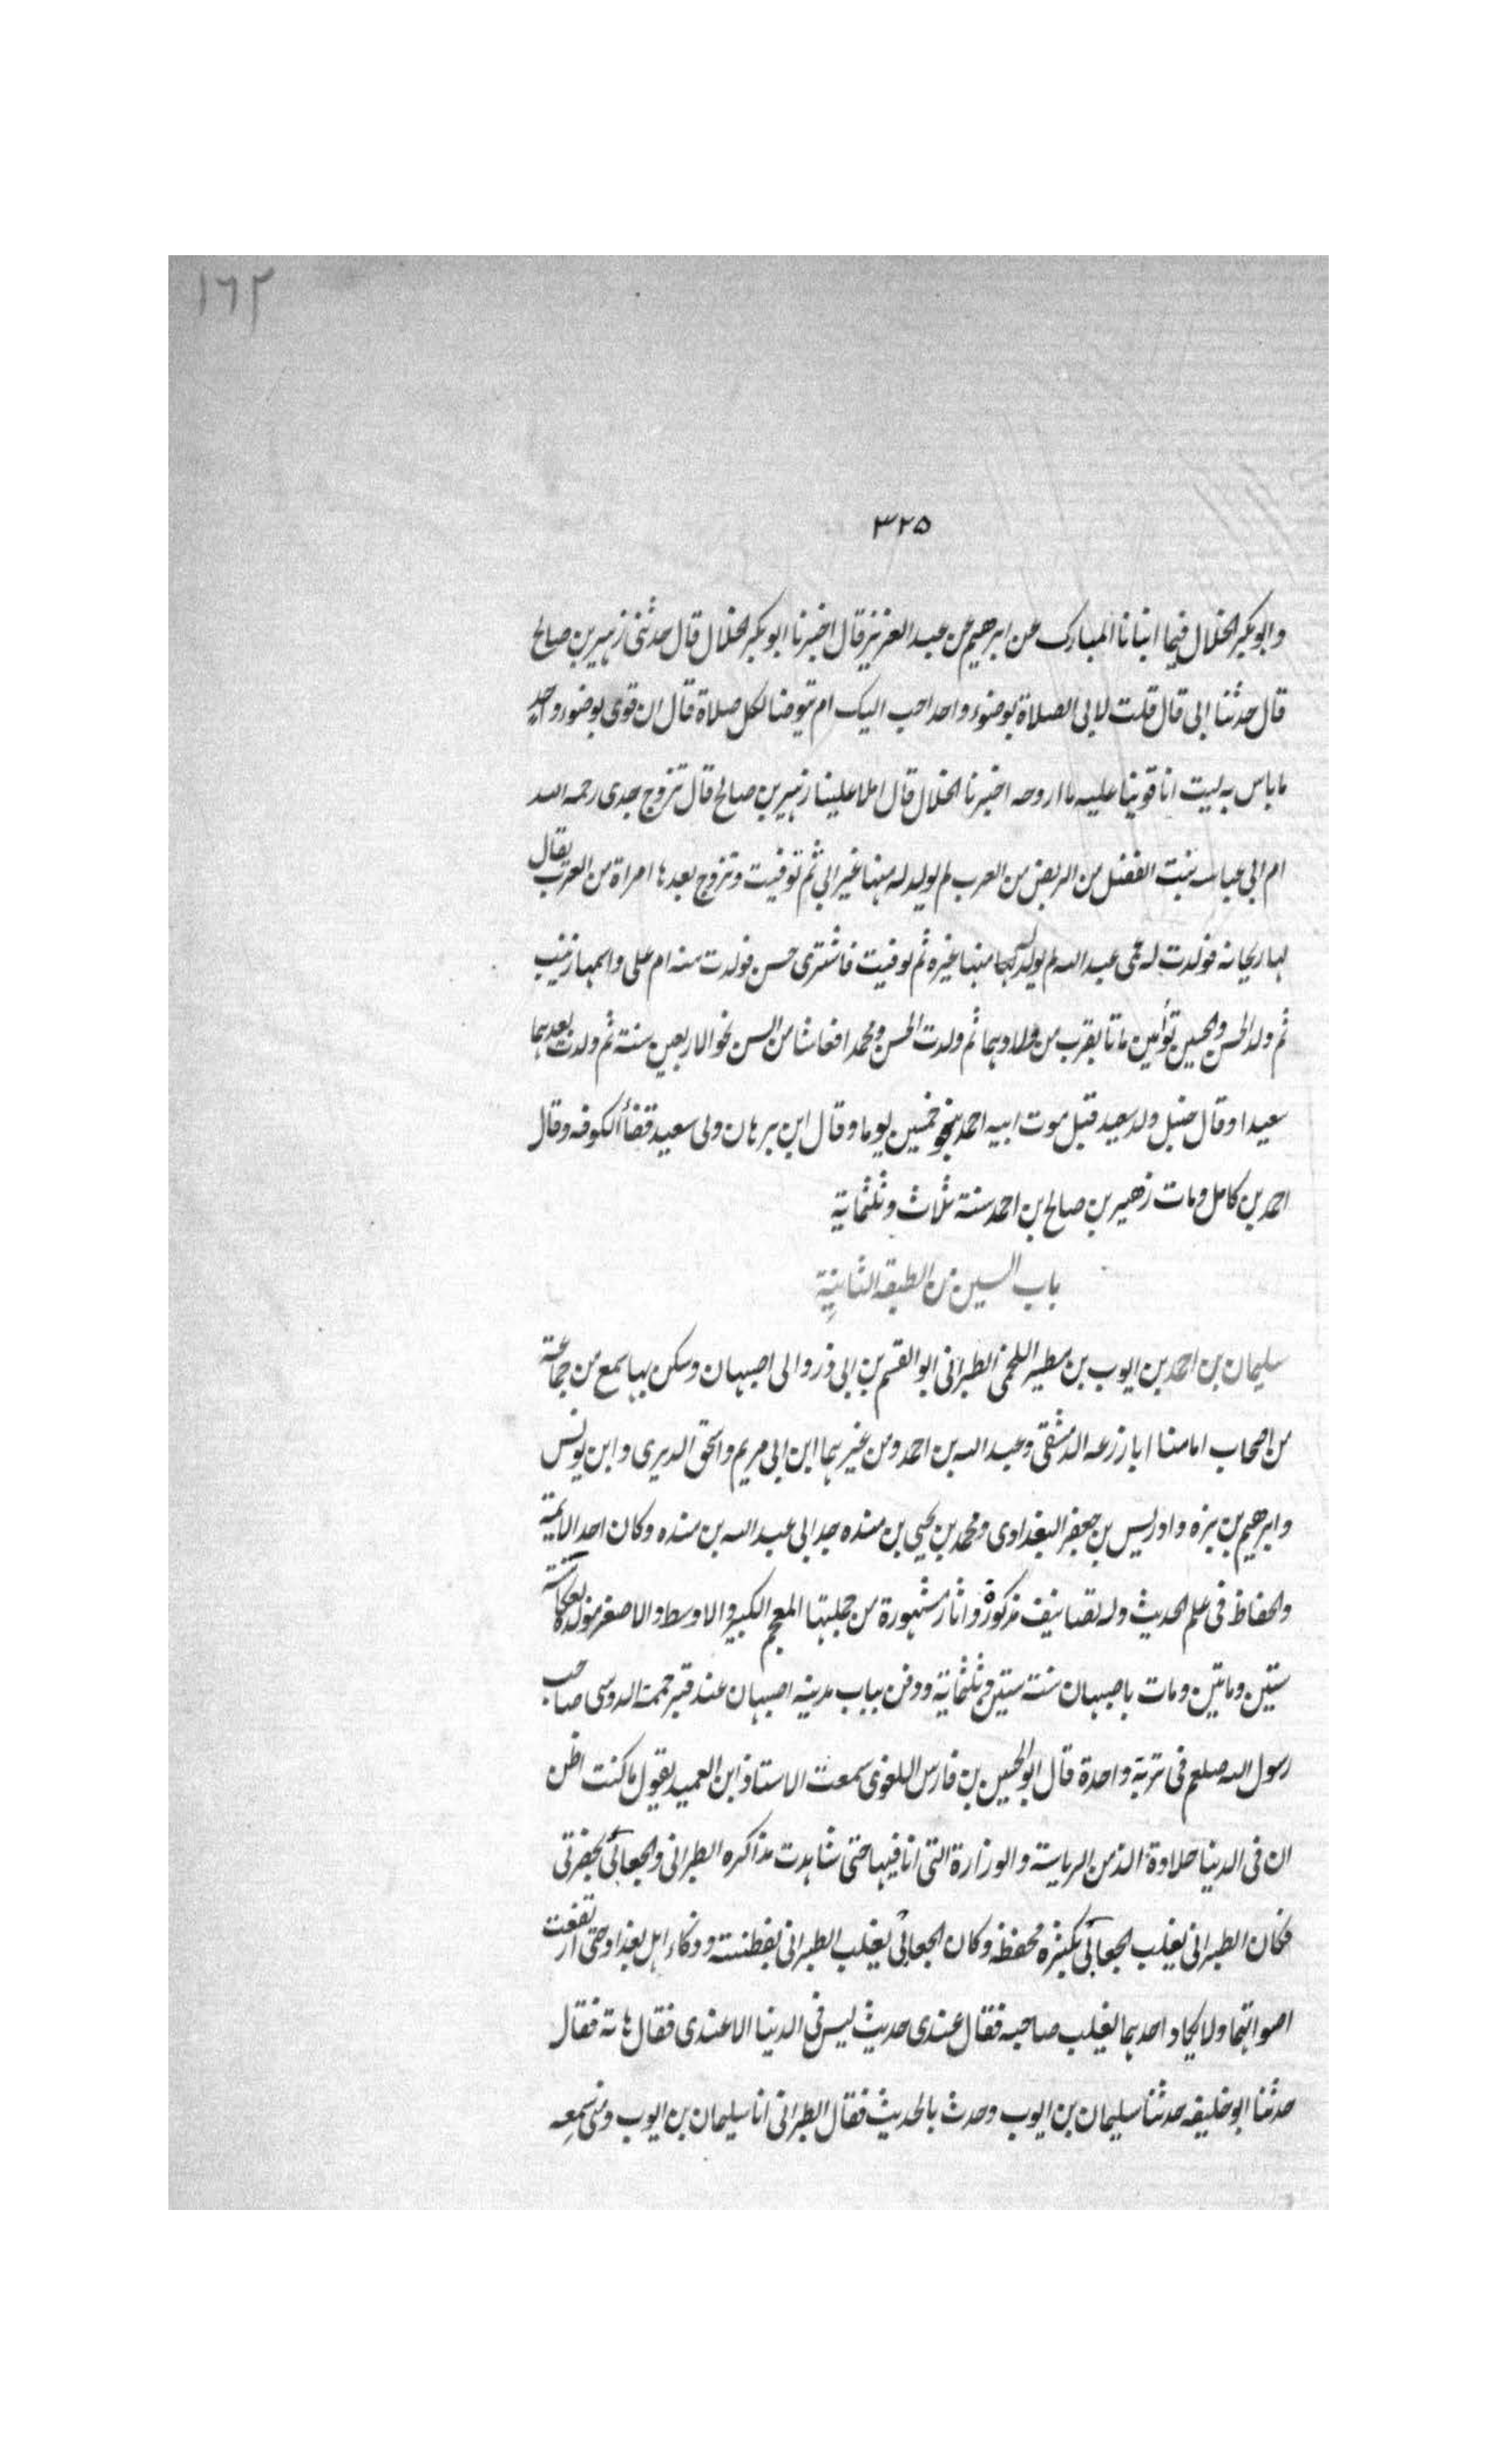 ١٦٢
٣٢٥
وابو بكر الخلال فيما انبانا المبارك عن ابرهيم عن عبد العزيز قال اخبرنا ابو بكر الخلال قال حدثنى زهير بن صالح
قال حدثنا ابى قال قلت لابى الصلاة بوضوء واحد احب اليك ام يتوضا لكل صلاة قال ان قوى بوضوء واحد
ما باس به ليت انا قوينا عليه ما اروحه اخبرنا الخلال قال املا علينا زهير بن صالح قال تزوج جدى رحمه الله
ام ابى عباسه بنت الفضل من الربض من العرب لم يولد له منها غير ابى ثم توفيت وتزوج بعدها امراة من العرب يقال
لها ريحانه فولدت له عمى عبد الله لم يولد له منها غيره ثم توفيت فاشترى حسن فولدت منه ام على واسمها زينب
ثم ولد الحسن والحسين توأمين ماتا بقرب من ولادهما ثم ولدت الحسن ومحمد افعاشا من السن نحو الاربعين سنة ثم ولدت بعدهما
سعيدا وقال حنبل ولد سعيد قبل موت ابيه احمد بنحو خمسين يوما وقال ابن برهان ولى سعيد قضأ الكوفه وقال
احمد بن كامل ومات زهير بن صالح ابن احمد سنة ثلاث وثلثماية
باب السين من الطبقه الثانية
سليمان بن احمد بن ايوب بن مطير اللخمى الطبرانى ابو القسم بن ابى ذر والى اصبهان وسكن بها سمع من جماعة
من اصحاب امامنا ابا زرعه الدمشقى وعبد الله بن احمد ومن غيرهما ابن ابى مريم واسحق الدبرى وابن يونس
وابرهيم بن بره وادريس بن جعفر البغدادى ومحمد بن يحيى بن منده جد ابى عبد الله بن منده وكان احد الايمة
والحفاظ فى علم الحديث وله تصانيف مذكورة واثار مشهورة من جملتها المعجم الكبير والاوسط والاصغر مولده بعكا سنة
ستين ومايتين ومات باصبهان سنة ستين وثلثماية ودفن بباب مدينه اصبهان عند قبر حممة الدوسى صاحب
رسول الله صلعم فى تربة واحدة قال ابو الحسين بن فارس اللغوى سمعت الاستاذ ابن العميد يقول ما كنت اظن
ان فى الدنيا حلاوة الذ من الرياسة والوزارة التى انا فيها حتى شاهدت مذاكره الطبرانى والجعابى بحضرتى
فكان الطبرانى يغلب الجعابى بكثرة محفظه وكان الجعابى يغلب الطبرانى بفطنته وذكاء اهل بغداد حتى ارتفعت
اصواتهما ولا يكاد احدهما يغلب صاحبه فقال عندى حديث ليس فى الدنيا الا عندى فقال هاته فقال
حدثنا ابو خليفه حدثنا سليمان بن ايوب وحدث بالحديث فقال الطبرانى انا سليمان بن ايوب ومنى سمعه